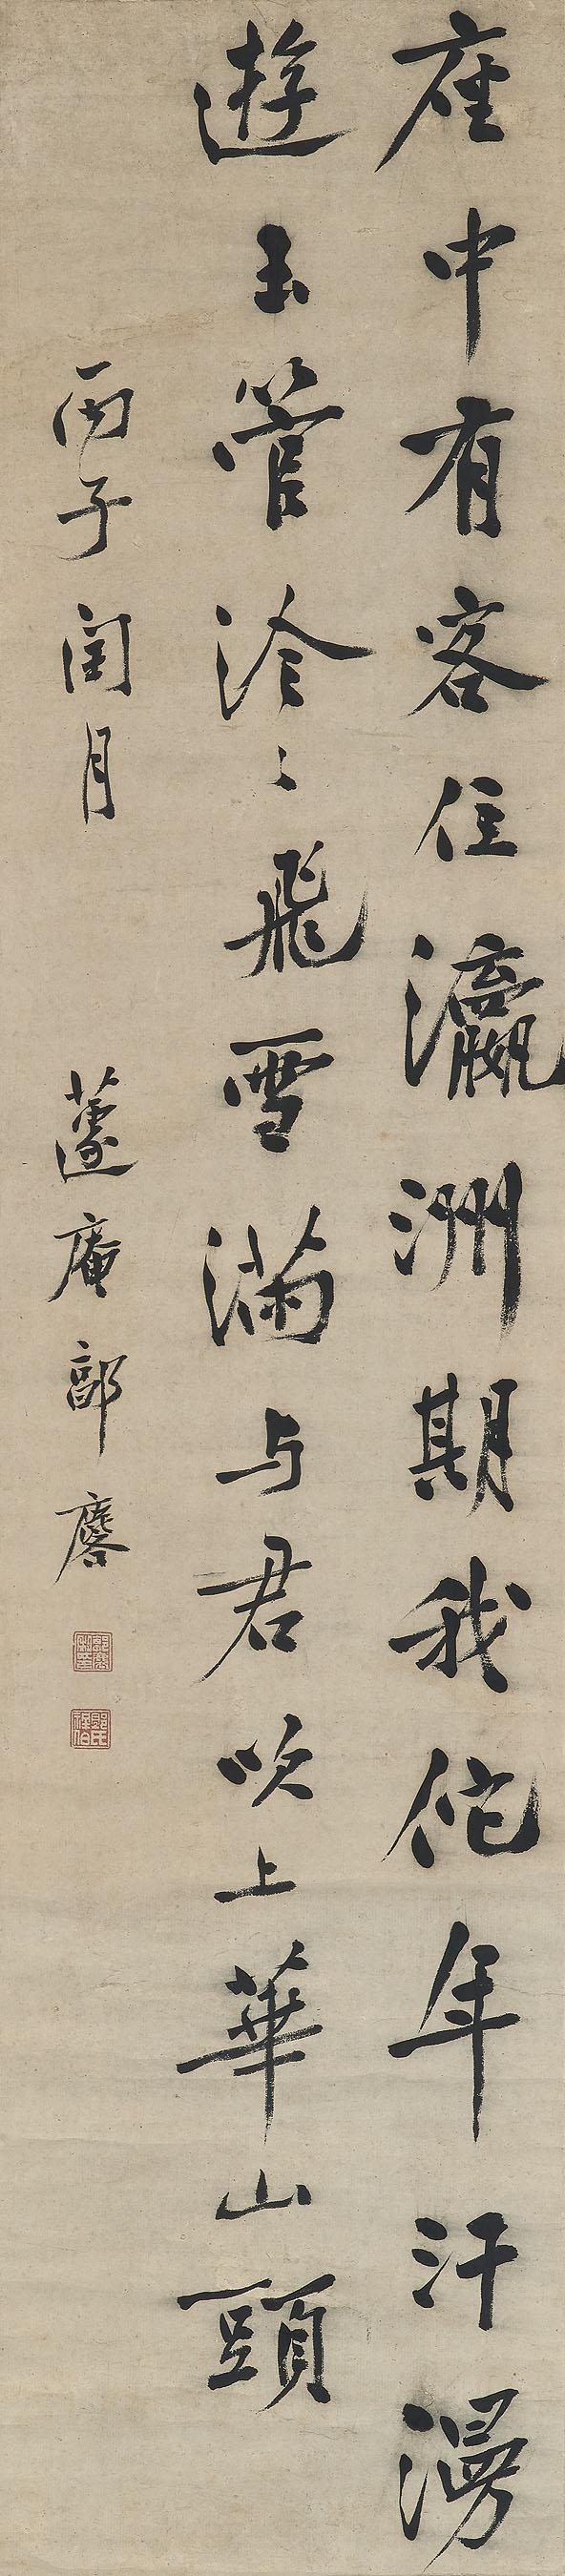 座中有客住瀛洲期我佗年汗漫
遊玉管泠〻飛雪滿与君吹上華山頭
丙子閏月 蘧庵郭麐